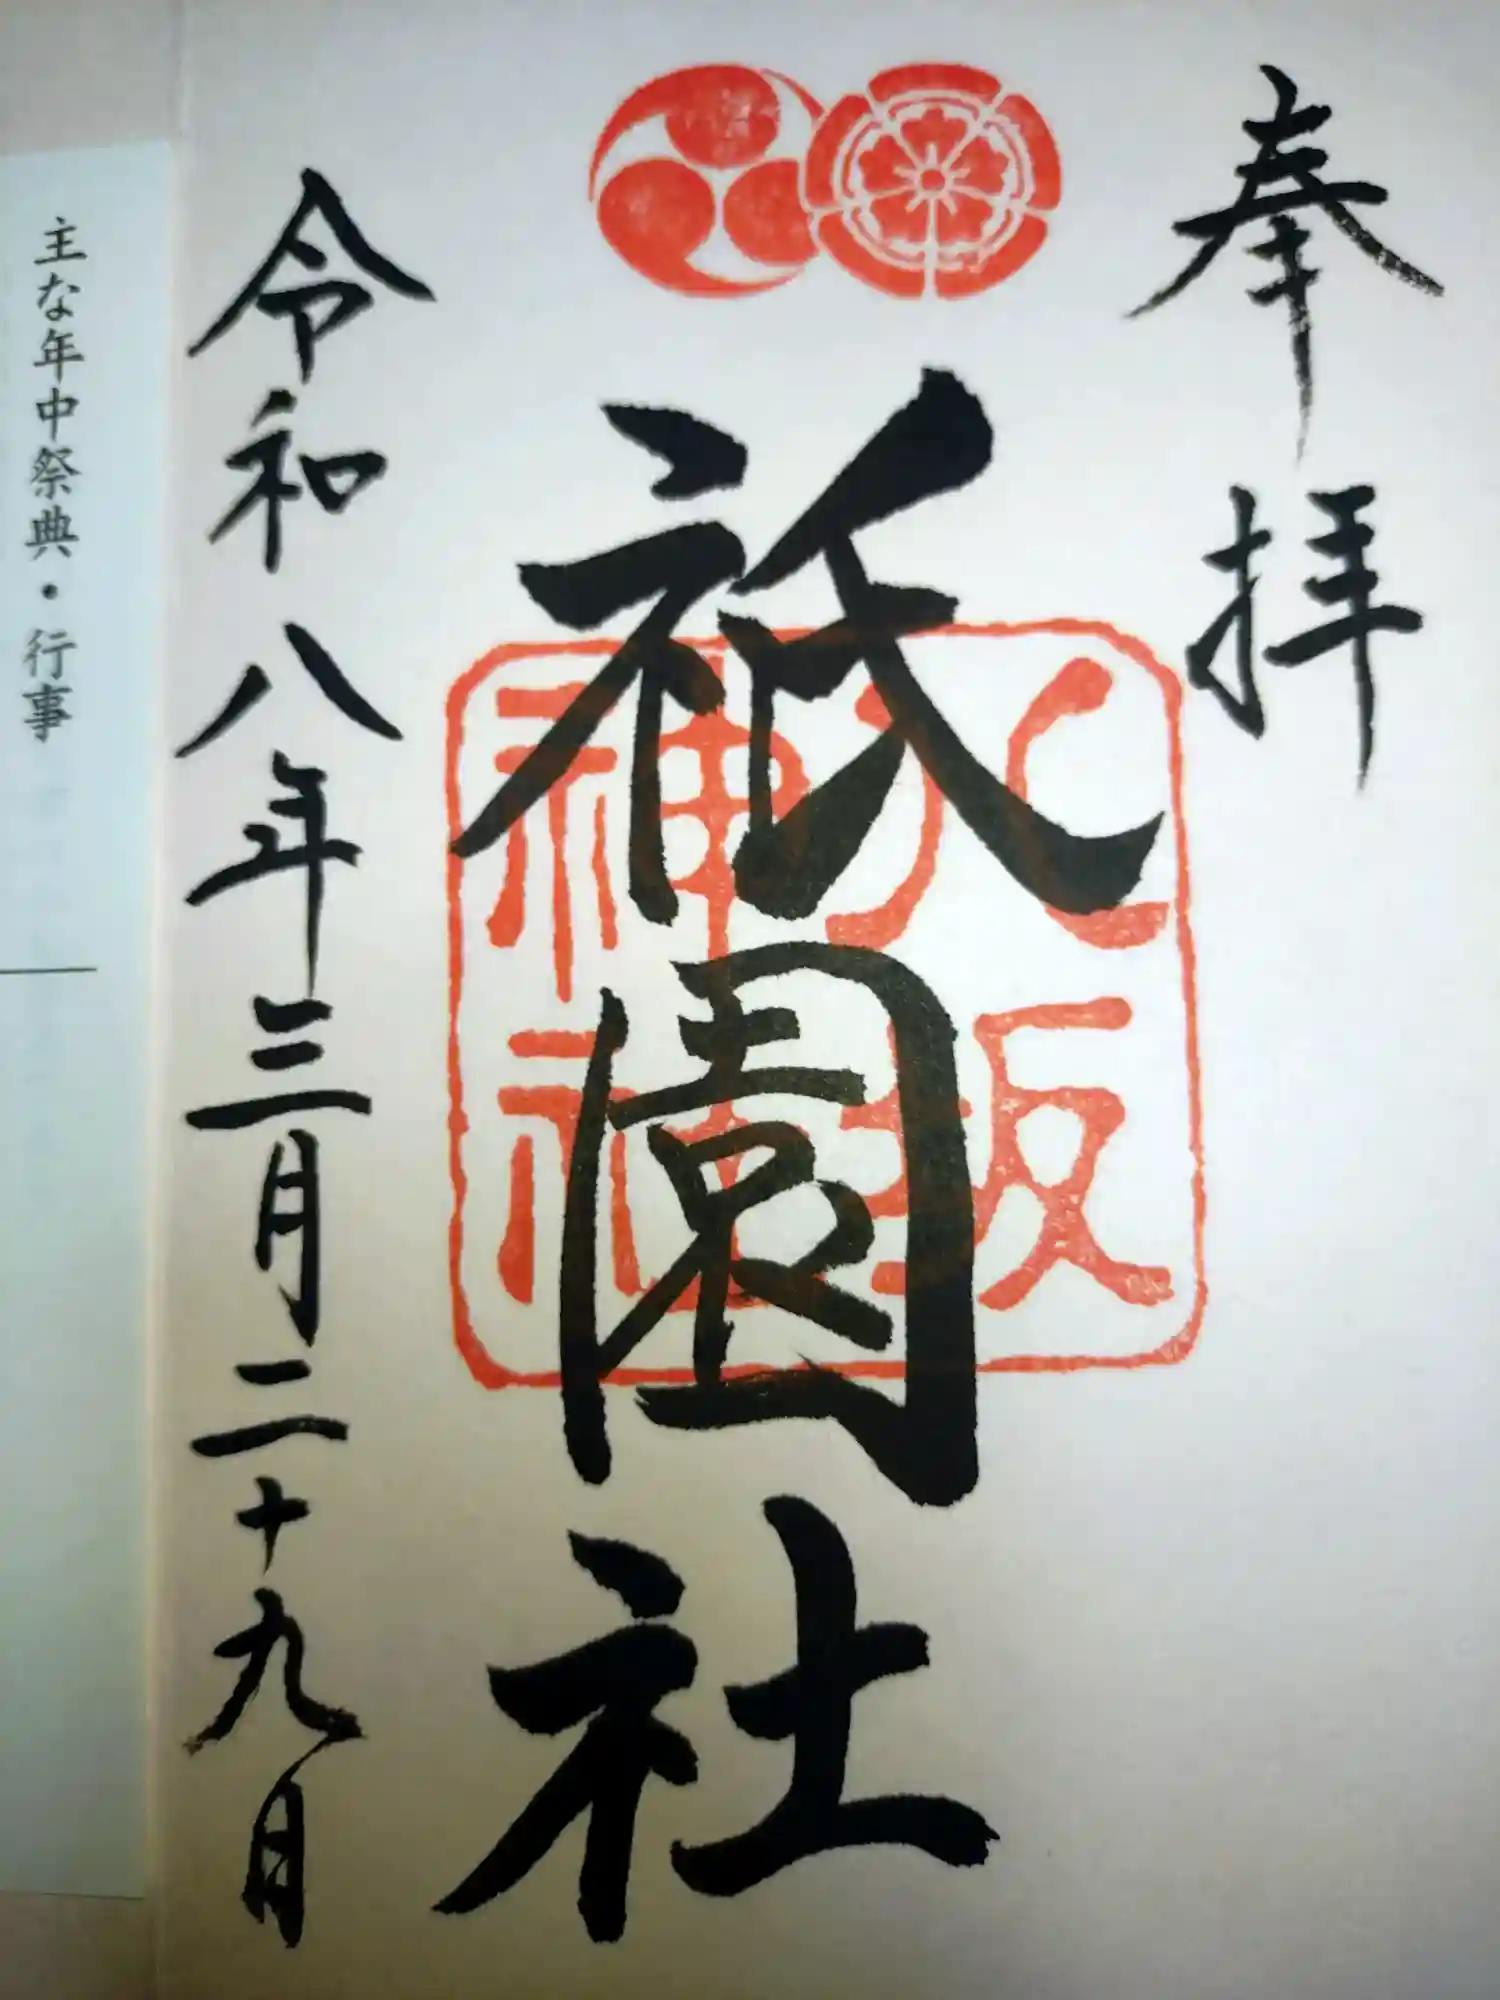 奉拝
祇園社
八坂神社
令和八年三月二十九日
主な年中祭典・行事